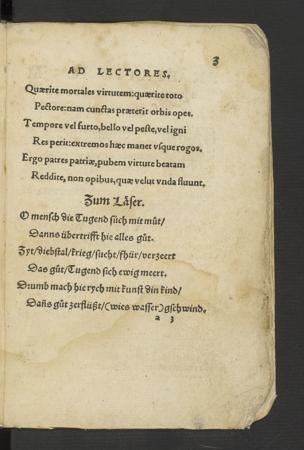 3
AD LECTORES.
Quærite mortales virtutem: quærite toto
Pectore: nam cunctas præterit orbis opes.
Tempore vel furto, bello vel peste, vel igni
Res perit: extremos hæc manet vsque rogos.
Ergo patres patriæ, pubem virtute beatam
Reddite, non opibus, quæ velut vnda fluunt.
Zum Läser.
O mensch die Tugend sůch mit můt/
Danns übertrifft hie alles gůt.
Zyt/diebstal/krieg/sucht/fhür/verzeert
Das gůt/Tugend sich ewig meert.
Drumb mach hie rych mit kunst din kind/
Dañs gůt zerflüßt/(wies wasser)gschwind.
a 3